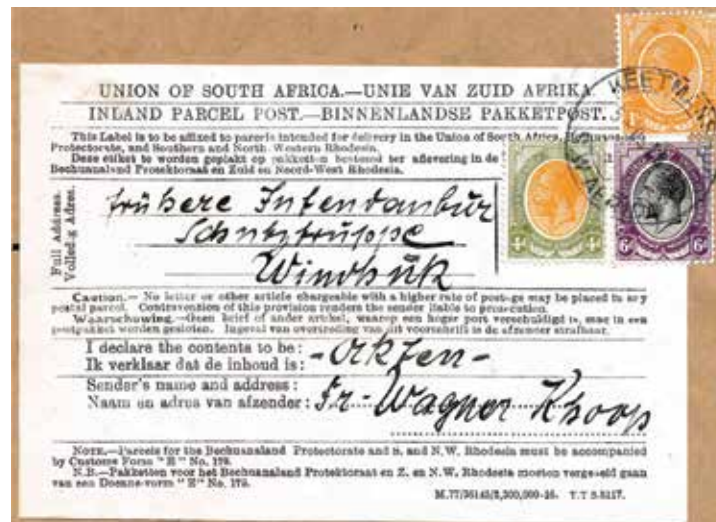 UNION OF SOUTH AFRICA.—UNIE VAN ZUID AFRIKA.
INLAND PARCEL POST.—BINNENLANDSE PAKKETPOST.
This Label is to be affixed to parcels intended for delivery in the Union of South Africa,
Protectorate, and Southern and North-Western Rhodesia.
Deze etiket te worden geplakt op pakketten bestemd ter aflevering in de
Bechuanaland Protektoraat en Zuid en Noord-West Rhodesia.
Full Address.
Volledig Adres.
frühere Intendantur
Schutztruppe
Windhuk
Caution.— No letter or other article chargeable with a higher rate of postage may be placed in any
postal parcel. Contravention of this provision renders the sender liable to prosecution.
Waarschuwing.—Geen brief of ander artikel, waarop een hoger port verschuldigd is, mag in een
postpakket worden gesloten. Ingeval van overtreding van dit voorschrift is de afzender strafbaar.
I declare the contents to be:
Ik verklaar dat de inhoud is:
-Akten-
Sender's name and address:
Naam en adres van afzender:
Fr. Wagner Khoop
NOTE.—Parcels for the Bechuanaland Protectorate and S. and N.W. Rhodesia must be accompanied
by Customs Form "E" No. 178.
N.B.—Pakketten voor het Bechuanaland Protektoraat en Z. en N.W. Rhodesia moeten vergezeld gaan
van een Doeane-vorm "E" No. 178.
KEETMANS
4d
4d
6d
6d